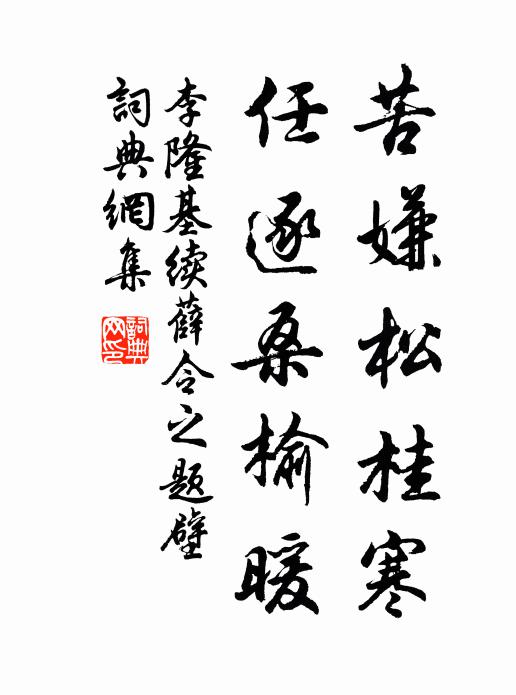 苦嫌松桂寒
任逐桑榆暖
李隆基续薛令之题壁
詞典網集
詞典
网印